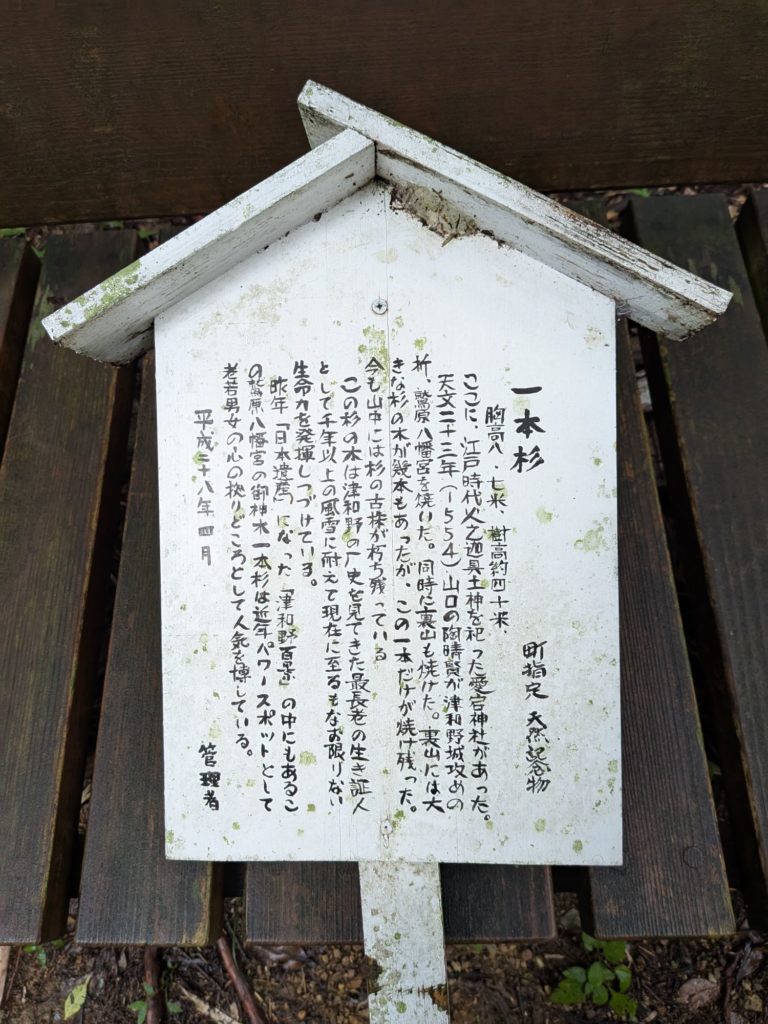 一本杉
町指定 天然記念物
胸高八・七米、樹高約四十米、
ここに、江戸時代火之迦具土神を祀った愛宕神社があった。
天文二十三年(1554)山口の陶晴賢が津和野城攻めの
折、鷲原八幡宮を焼いた。同時に裏山も焼けた。裏山には大
きな杉の木が幾本もあったが、この一本だけが焼け残った。
今も山中には杉の古株が朽ち残っている
この杉の木は津和野の厂史を見てきた最長老の生き証人
として千年以上の風雪に耐えて現在に至るもなお限りない
生命力を発揮しつづけている。
昨年「日本遺産」になった「津和野百景」の中にもあるこ
の鷲原八幡宮の御神木一本杉は近年パワースポットとして
老若男女の心の拠りどころとして人気を博している。
平成二十八年 四月
管理者